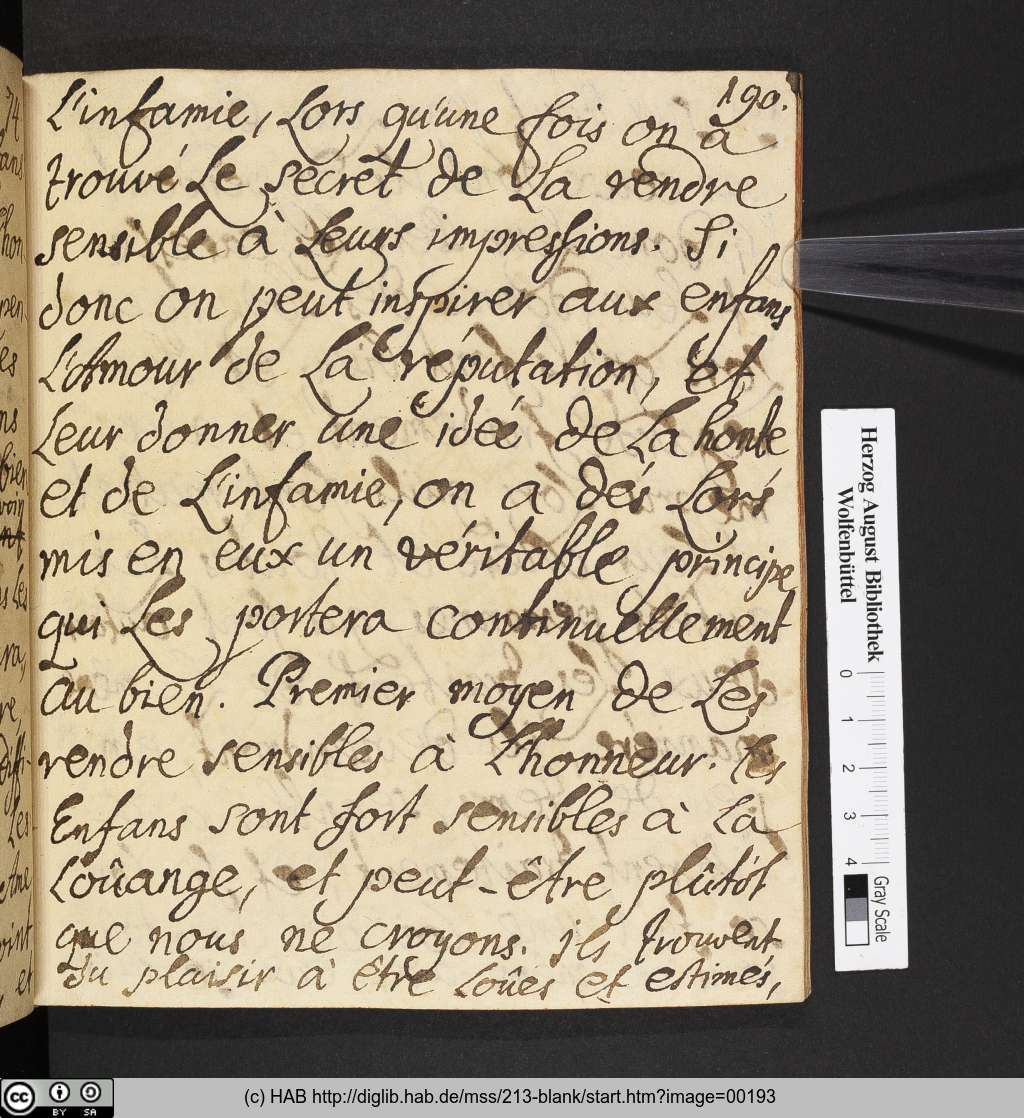 190.
L'infamie, Lors qu'une fois on a
trouvé Le secret de La rendre
sensible à Leurs impressions. Si
donc on peut inspirer aux enfans
L'Amour de La réputation, et
Leur donner une idée de La honte
et de L'infamie, on a dés Lors
mis en eux un véritable principe
qui Les portera continuellement
au bien. Premier moyen de Les
rendre sensibles à L'honneur. Les
Enfans sont fort sensibles à La
Loûange, et peut-être plûtôt
que nous ne croyons. ils trouvent
du plaisir à être Loûes et estimés,
Herzog August Bibliothek
Wolfenbüttel
0 1 2 3 4
Gray Scale
cc BY SA
(c) HAB http://diglib.hab.de/mss/213-blank/start.htm?image=00193